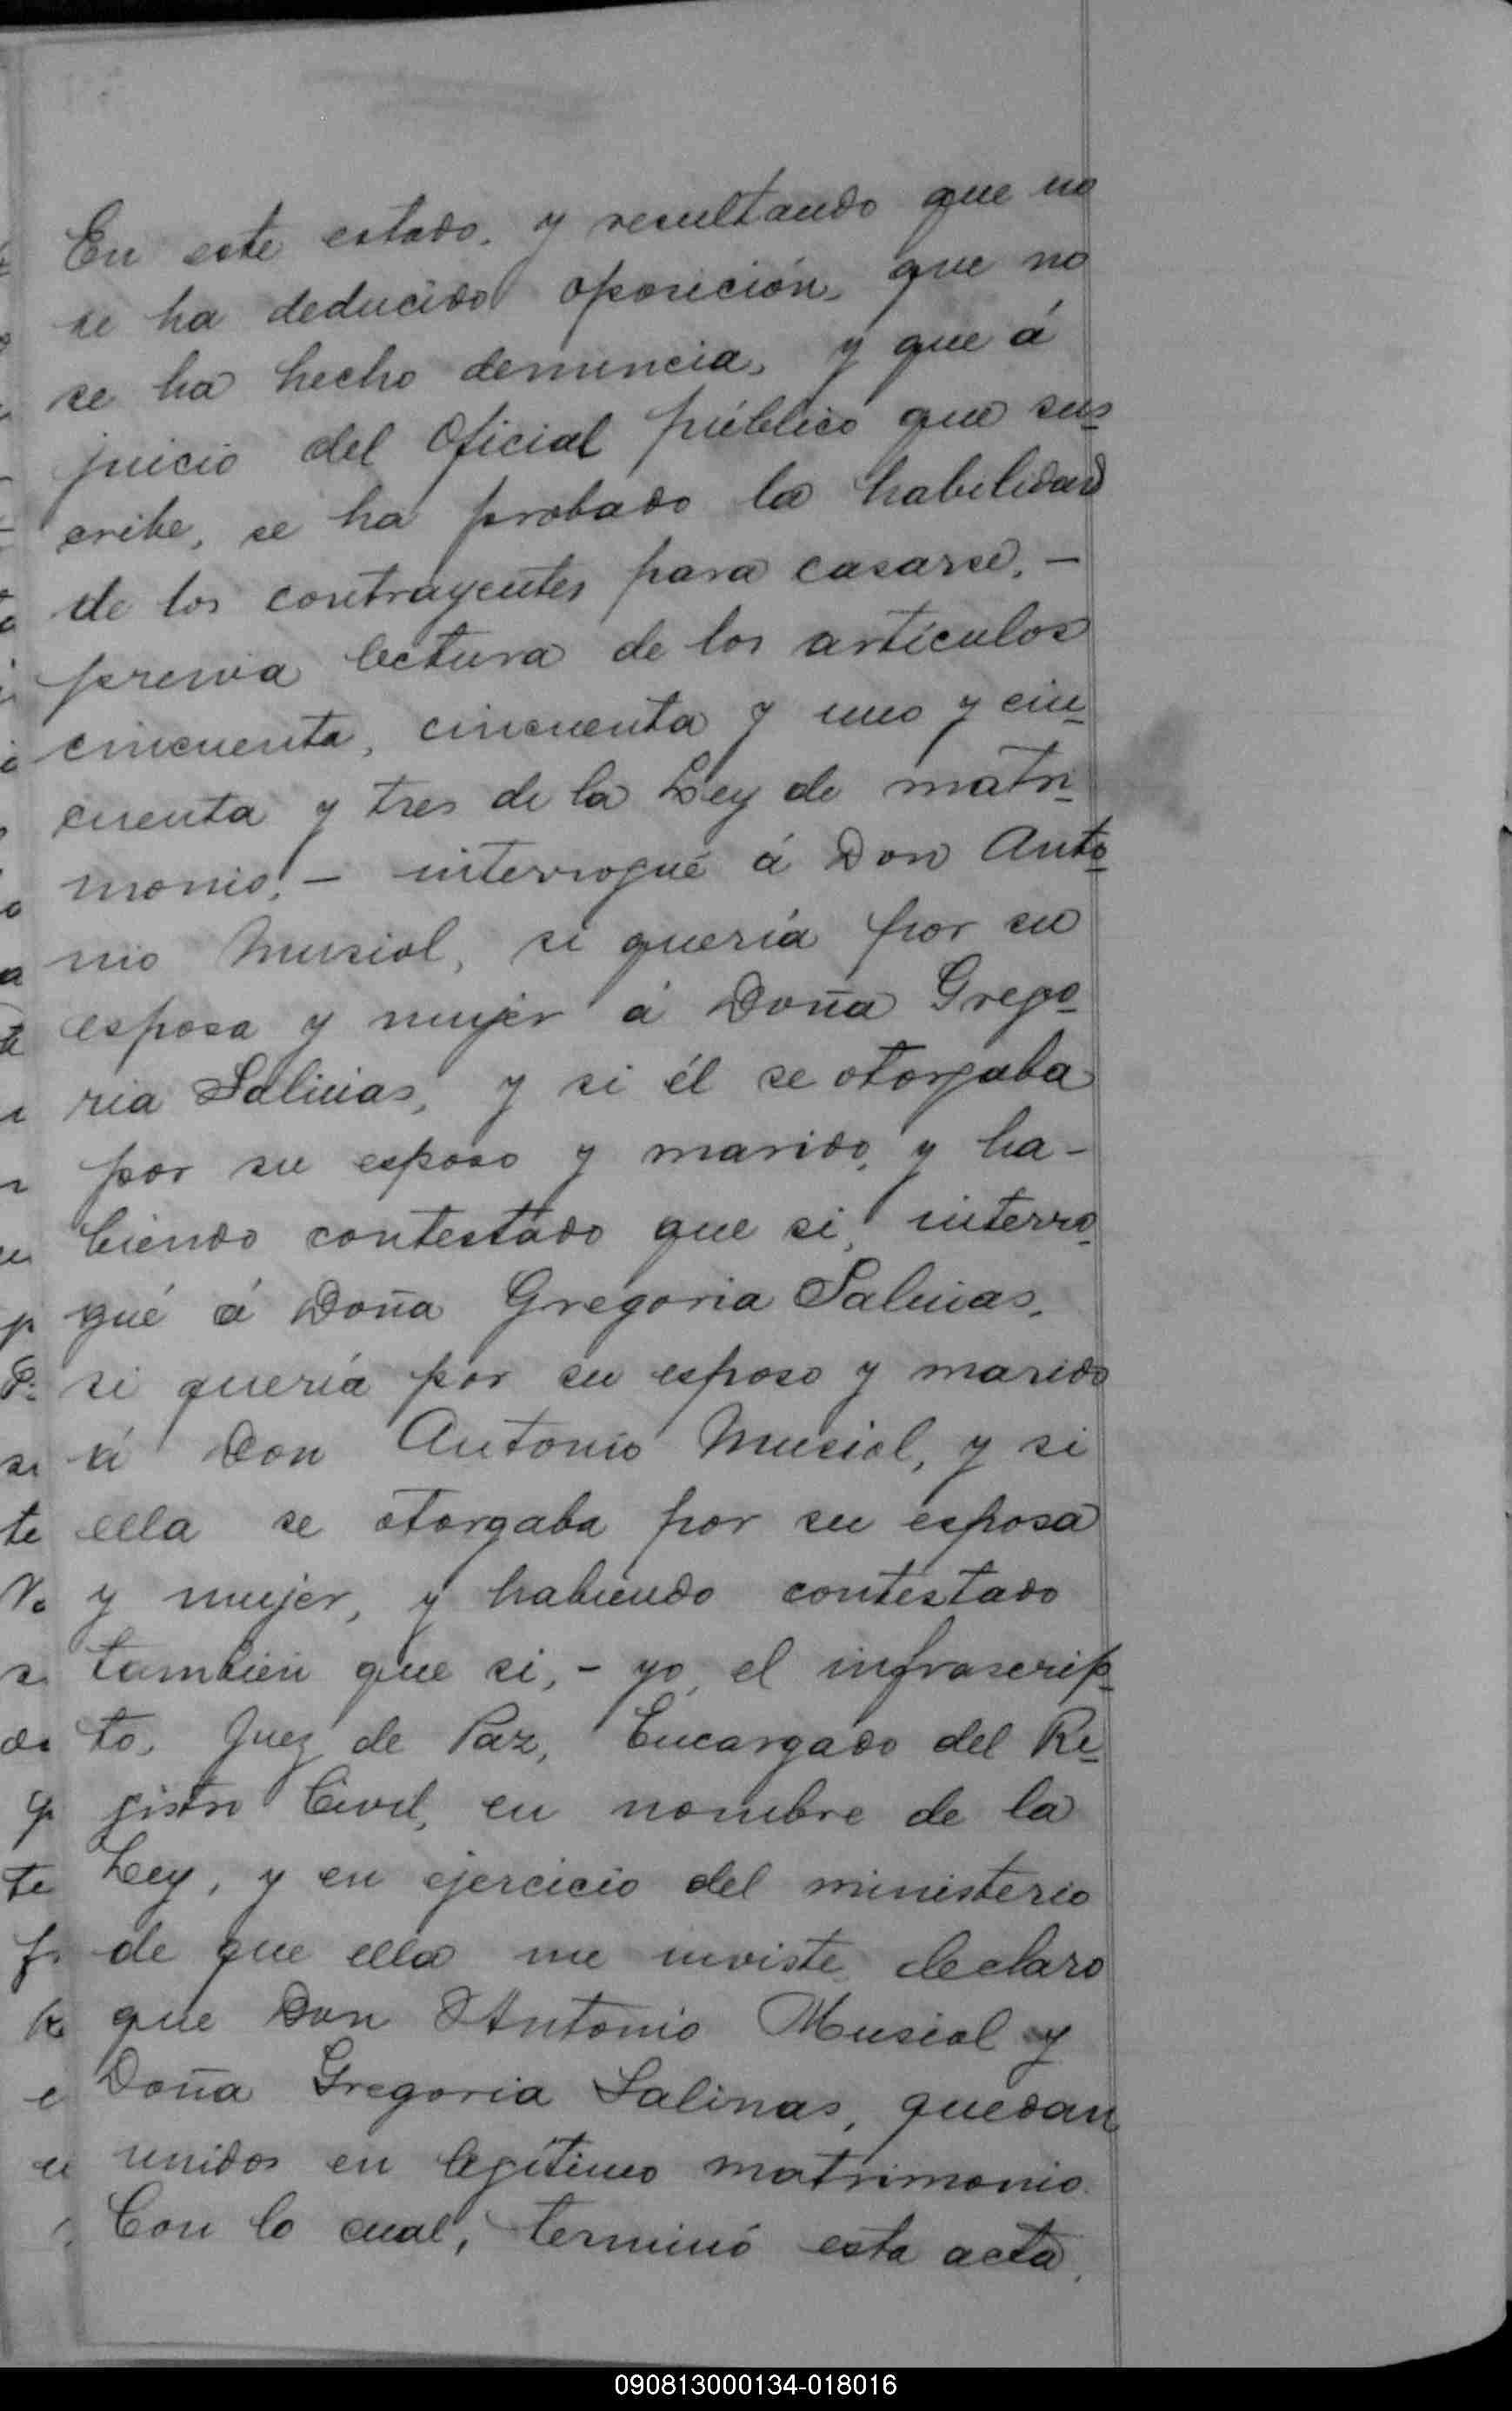 En este estado, y resultando que no
se ha deducido oposición, que no
se ha hecho denuncia, y que á
juicio del Oficial público que sus
cribe, se ha probado la habilidad
de los contrayentes para casarse, -
previa lectura de los artículos
cincuenta, cincuenta y uno y cin
cuenta y tres de la Ley de matri
monio, - interrogué á Don Anto
nio Musiol, si quería por su
esposa y mujer á Doña Grego
ria Salinas, y si él se otorgaba
por su esposo y marido, y ha-
biendo contestado que si, interro
gué á Doña Gregoria Salinas,
si quería por su esposo y marido
á Don Antonio Musiol, y si
ella se otorgaba por su esposa
y mujer, y habiendo contestado
también que si, - yo, el infrascrip
to, Juez de Paz, Encargado del Re
gistro Civil, en nombre de la
Ley, y en ejercicio del ministerio
de que ella me inviste, declaro
que Don Antonio Musiol y
Doña Gregoria Salinas, quedan
unidos en legítimo matrimonio.
Con lo cual, terminó esta acta,
090813000134-018016